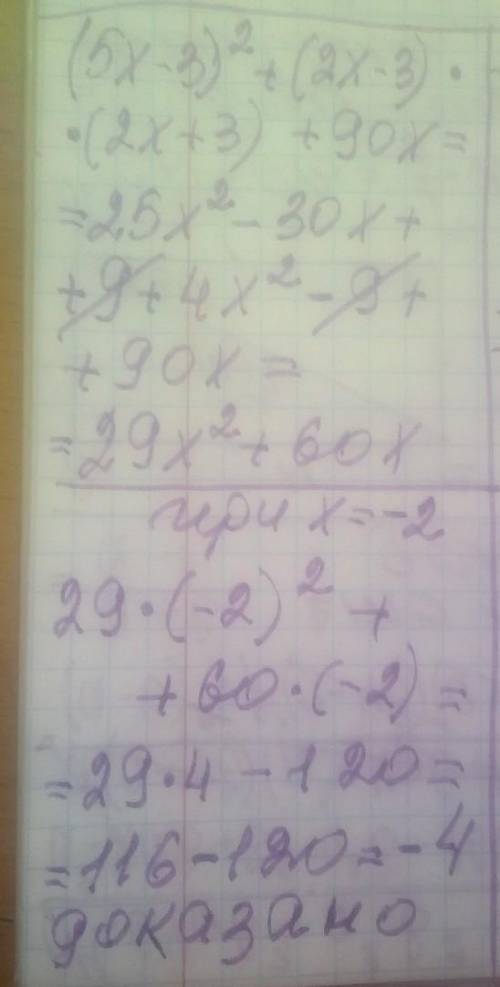 (5x-3)² + (2x-3) ·
· (2x+3) + 90x =
= 25x² - 30x +
+ 9 + 4x² - 9 +
+ 90x =
= 29x² + 60x
при x = -2
29 · (-2)² +
+ 60 · (-2) =
= 29 · 4 - 120 =
= 116 - 120 = -4
доказано